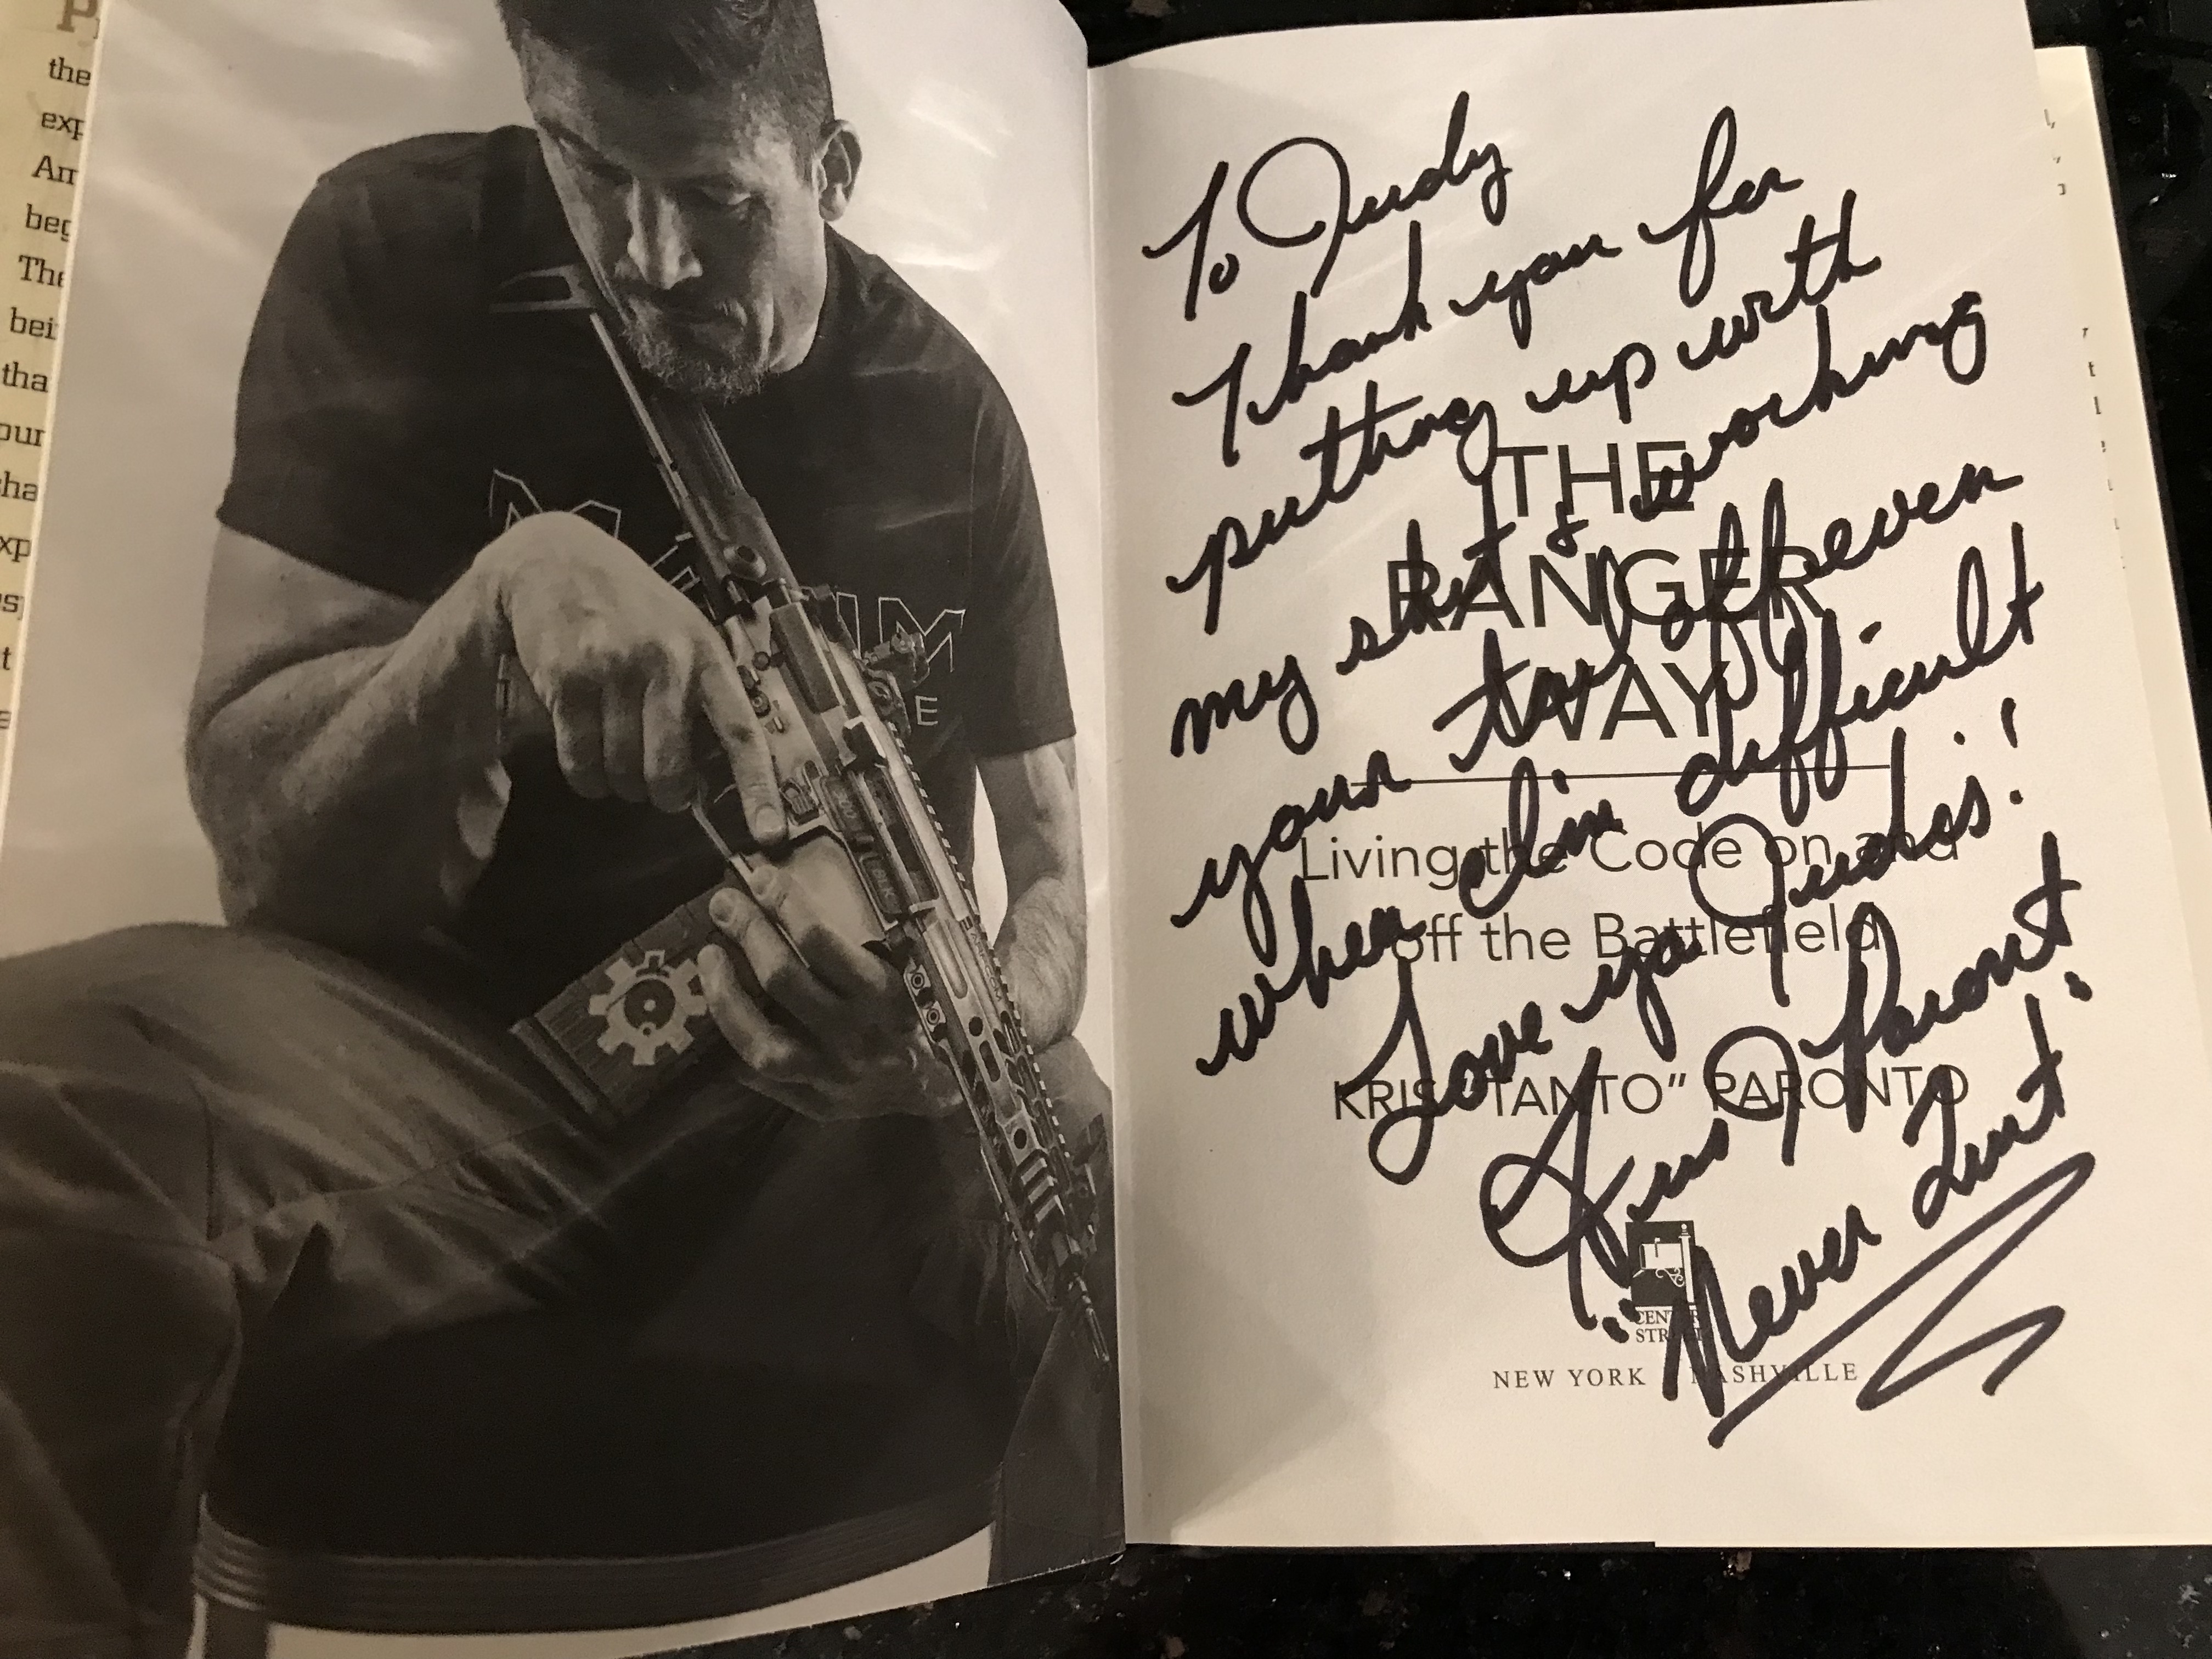 the
exp
Am
beg
The
bei
tha
our
sha
xp
t
MAXIM
E
To Judy
Thank you for
putting up with
my shit & working
your tail off even
when I'm difficult
Love ya Judos!
Kris Paronto
"Never Quit"
THE
RANGER
WAY
Living the Code on and
off the Battlefield
KRIS "TANTO" PARONTO
CENTER
STREET
NEW YORK NASHVILLE